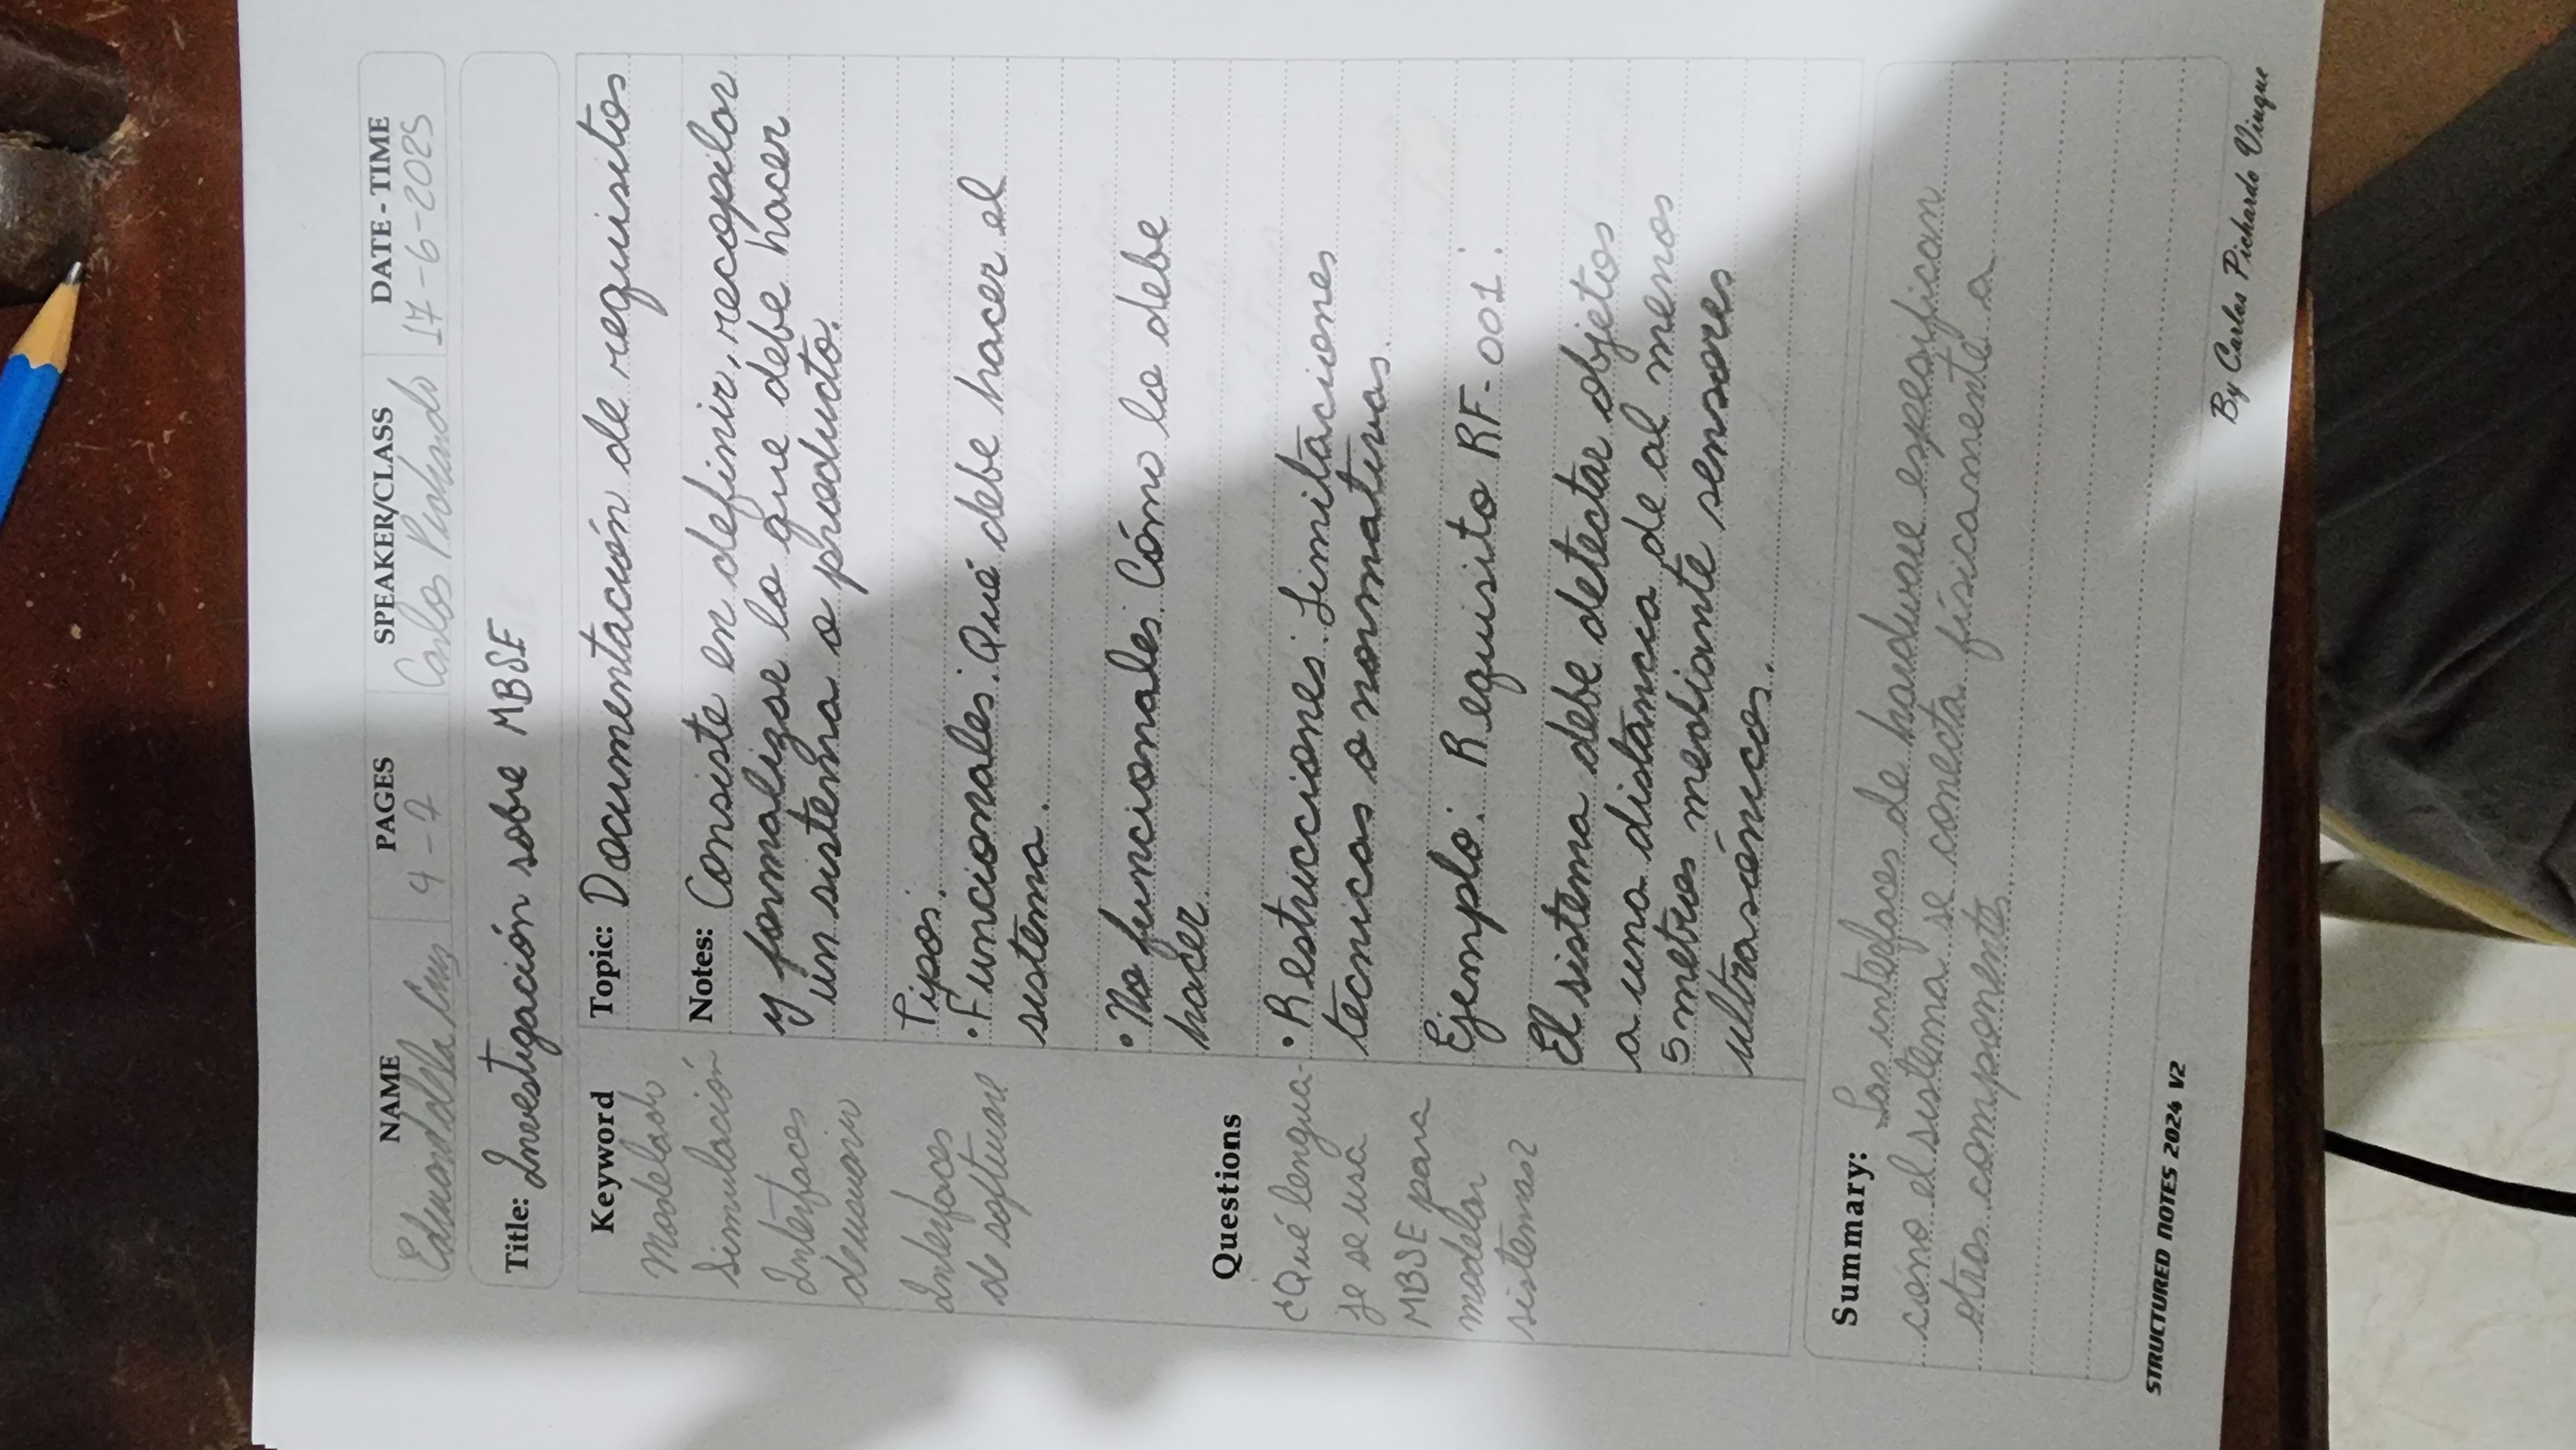 NAME PAGES SPEAKER/CLASS DATE - TIME
Eduard de la Cruz 4 - 7 Carlos Pichardo 17-6-2025
Title: Investigación sobre MBSE
Keyword
Modelado
Simulación
Interfaces
de usuario
Interfaces
de software
Questions
¿Qué lengua-
je se usa
MBSE para
modelar
sistemas?
Topic: Documentación de requisitos
Notes: Consiste en definir, recopilar
y formalizar lo que debe hacer
un sistema o producto.
Tipos:
•Funcionales: Qué debe hacer el
sistema.
•No funcionales: Cómo lo debe
hacer.
•Restricciones: Limitaciones
técnicas o normativas.
Ejemplo: Requisito RF-001:
El sistema debe detectar objetos
a una distancia de al menos
5 metros mediante sensores
ultrasónicos.
Summary: Las interfaces de hardware especifican
cómo el sistema se conecta físicamente a
otros componentes.
STRUCTURED NOTES 2024 V2
By Carlos Pichardo Viuque